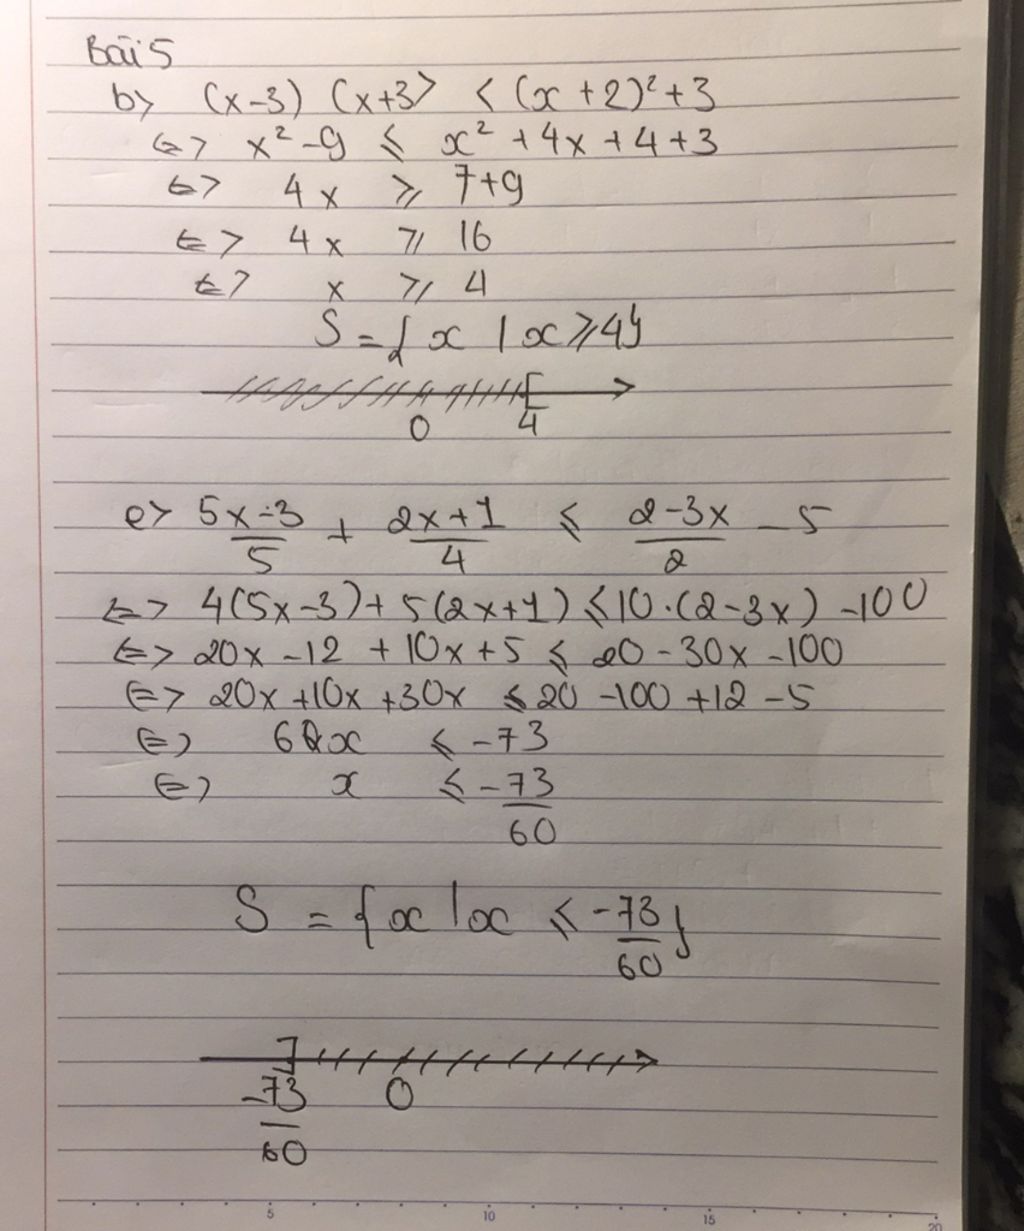 Bài 5
b> (x-3) (x+3> < (x+2)²+3
<=> x²-9 ≤ x²+4x+4+3
<=> 4x ≥ 7+9
<=> 4x ≥ 16
<=> x ≥ 4
S={x | x≥4}
0 4
e> 5x-3/5 + 2x+1/4 ≤ 2-3x/2 - 5
<=> 4(5x-3)+5(2x+1) ≤ 10.(2-3x) -100
<=> 20x -12 + 10x+5 ≤ 20-30x -100
<=> 20x+10x+30x ≤ 20 -100 +12 -5
<=> 60x ≤ -73
<=> x ≤ -73/60
S = {x | x ≤ -73/60}
-73/60 0
5 10 15 20